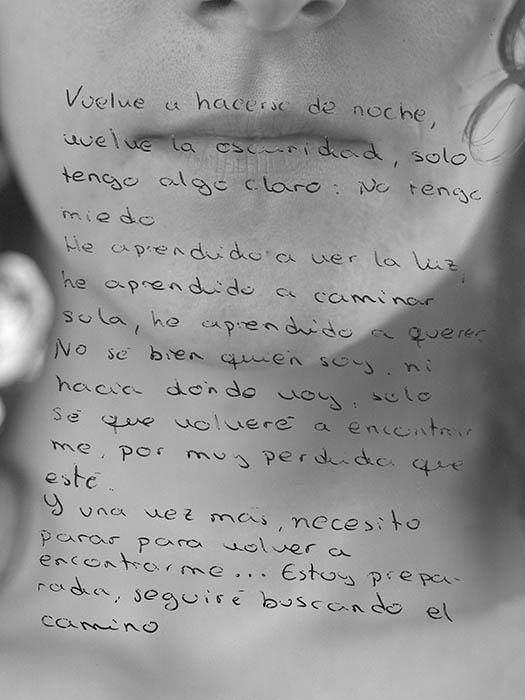 Vuelve a hacerse de noche,
vuelve la oscuridad, solo
tengo algo claro: No tengo
miedo
He aprendido a ver la luz,
he aprendido a caminar
sola, he aprendido a querer.
No sé bien quien soy, ni
hacia dónde voy, solo
sé que volveré a encontrar
me, por muy perdida que
esté.
Y una vez más, necesito
parar para volver a
encontrarme... Estoy prepa-
rada, seguiré buscando el
camino